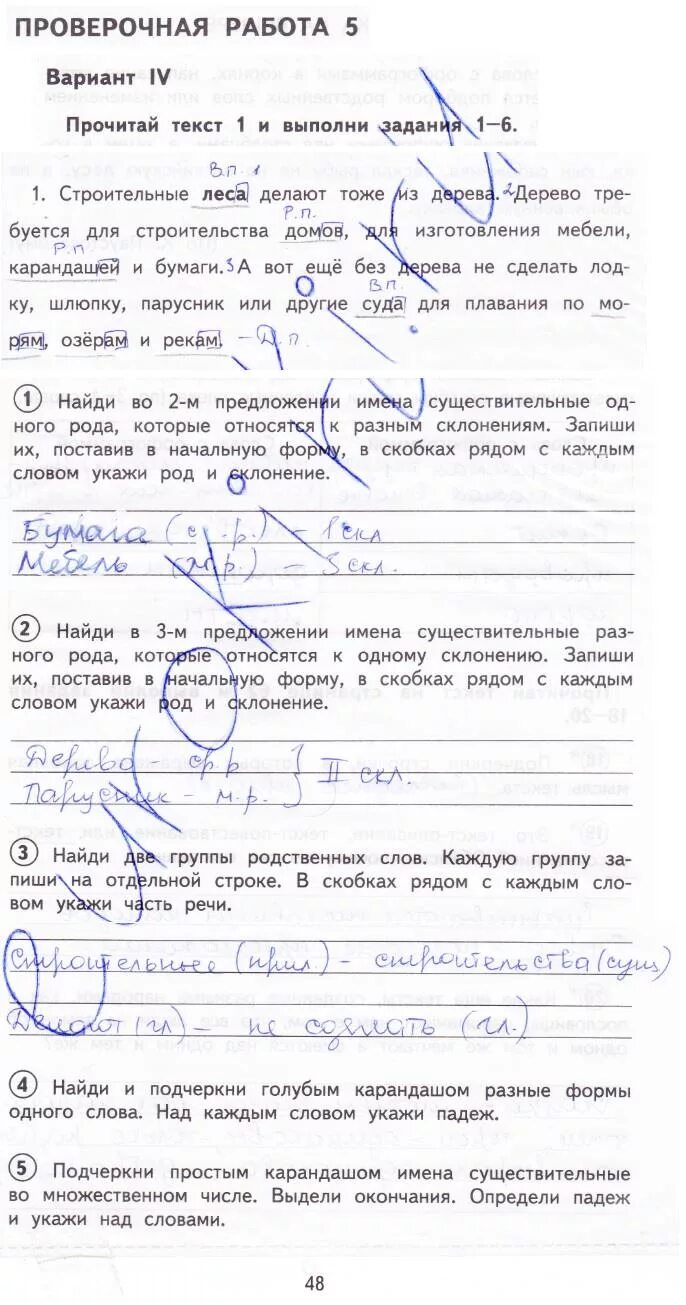 ПРОВЕРОЧНАЯ РАБОТА 5
Вариант IV
Прочитай текст 1 и выполни задания 1–6.
В.п.
1. Строительные леса делают тоже из дерева. 2 Дерево тре-
Р.п.
буется для строительства домов, для изготовления мебели,
Р.п
карандашей и бумаги. 3 А вот ещё без дерева не сделать лод-
В.п.
ку, шлюпку, парусник или другие суда для плавания по мо-
рям, озёрам и рекам. – Д.п.
1 Найди во 2-м предложении имена существительные од-
ного рода, которые относятся к разным склонениям. Запиши
их, поставив в начальную форму, скобках рядом с каждым
словом укажи род и склонение.
Бумага ( .р.) – 1 скл
Мебель ( р.) – 3 скл.
2 Найди в 3-м предложении имена существительные раз-
ного рода, которые относятся к одному склонению. Запиши
их, поставив в начальную форму, в скобках рядом с каждым
словом укажи род и склонение.
Дерево – ср р
Парусник – м.р. } II скл.
3 Найди две группы родственных слов. Каждую группу за-
пиши на отдельной строке. В скобках рядом с каждым сло-
вом укажи часть речи.
Строительные (прил.) – строительства (сущ)
Делают (гл) – не сделать (гл.)
4 Найди и подчеркни голубым карандашом разные формы
одного слова. Над каждым словом укажи падеж.
5 Подчеркни простым карандашом имена существительные
во множественном числе. Выдели окончания. Определи падеж
и укажи над словами.
48